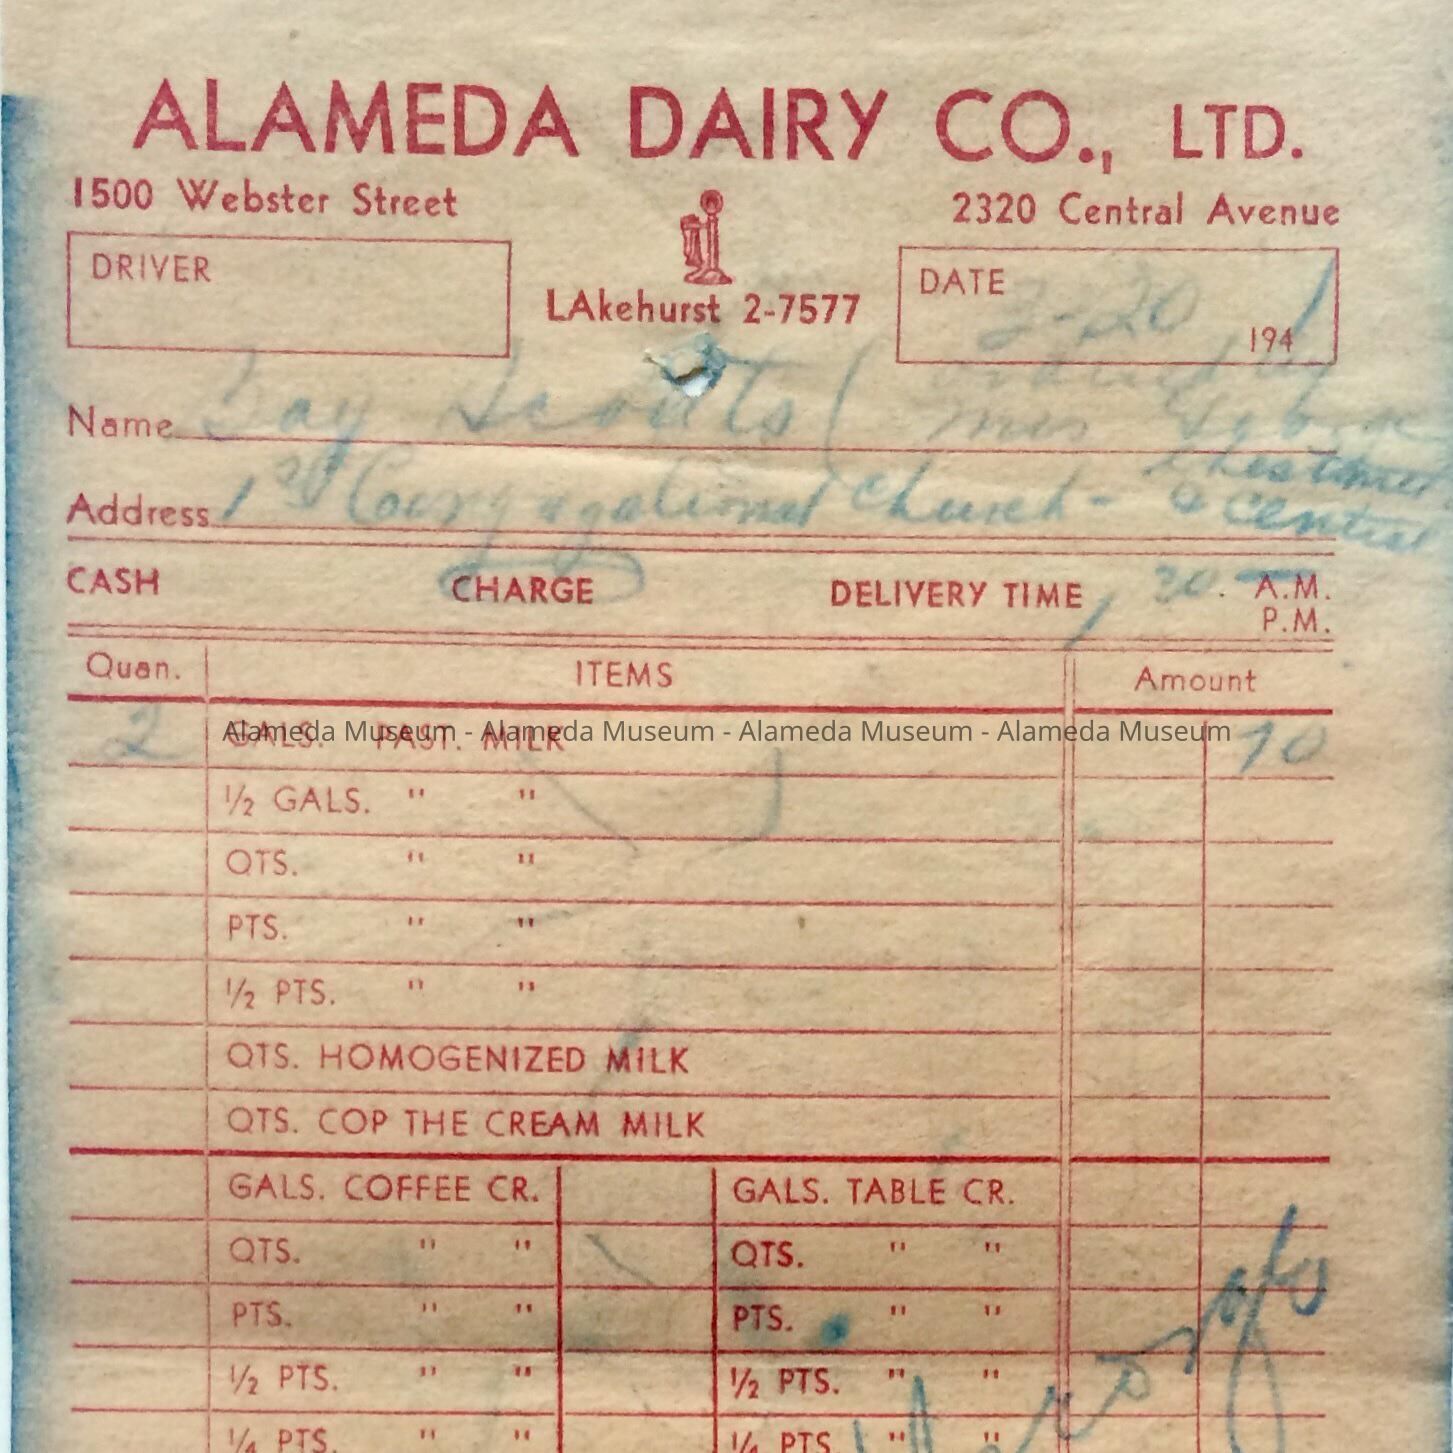 ALAMEDA DAIRY CO., LTD.
1500 Webster Street 2320 Central Avenue
DRIVER
LAkehurst 2-7577
DATE 3-20 1941
Name Boy Scouts ( ordered by Mrs
Address 1st Congregational Church - Chestnut & Central
CASH CHARGE DELIVERY TIME 1 30 A.M.
P.M.
Quan. ITEMS Amount
2 GALS. PAST. MILK 70
Alameda Museum - Alameda Museum - Alameda Museum - Alameda Museum
1/2 GALS. " "
QTS. " "
PTS. " "
1/2 PTS. " "
QTS. HOMOGENIZED MILK
QTS. COP THE CREAM MILK
GALS. COFFEE CR. GALS. TABLE CR.
QTS. " " QTS. " "
PTS. " " PTS. " "
1/2 PTS. " " 1/2 PTS. " "
1/4 PTS. " " 1/4 PTS. " "